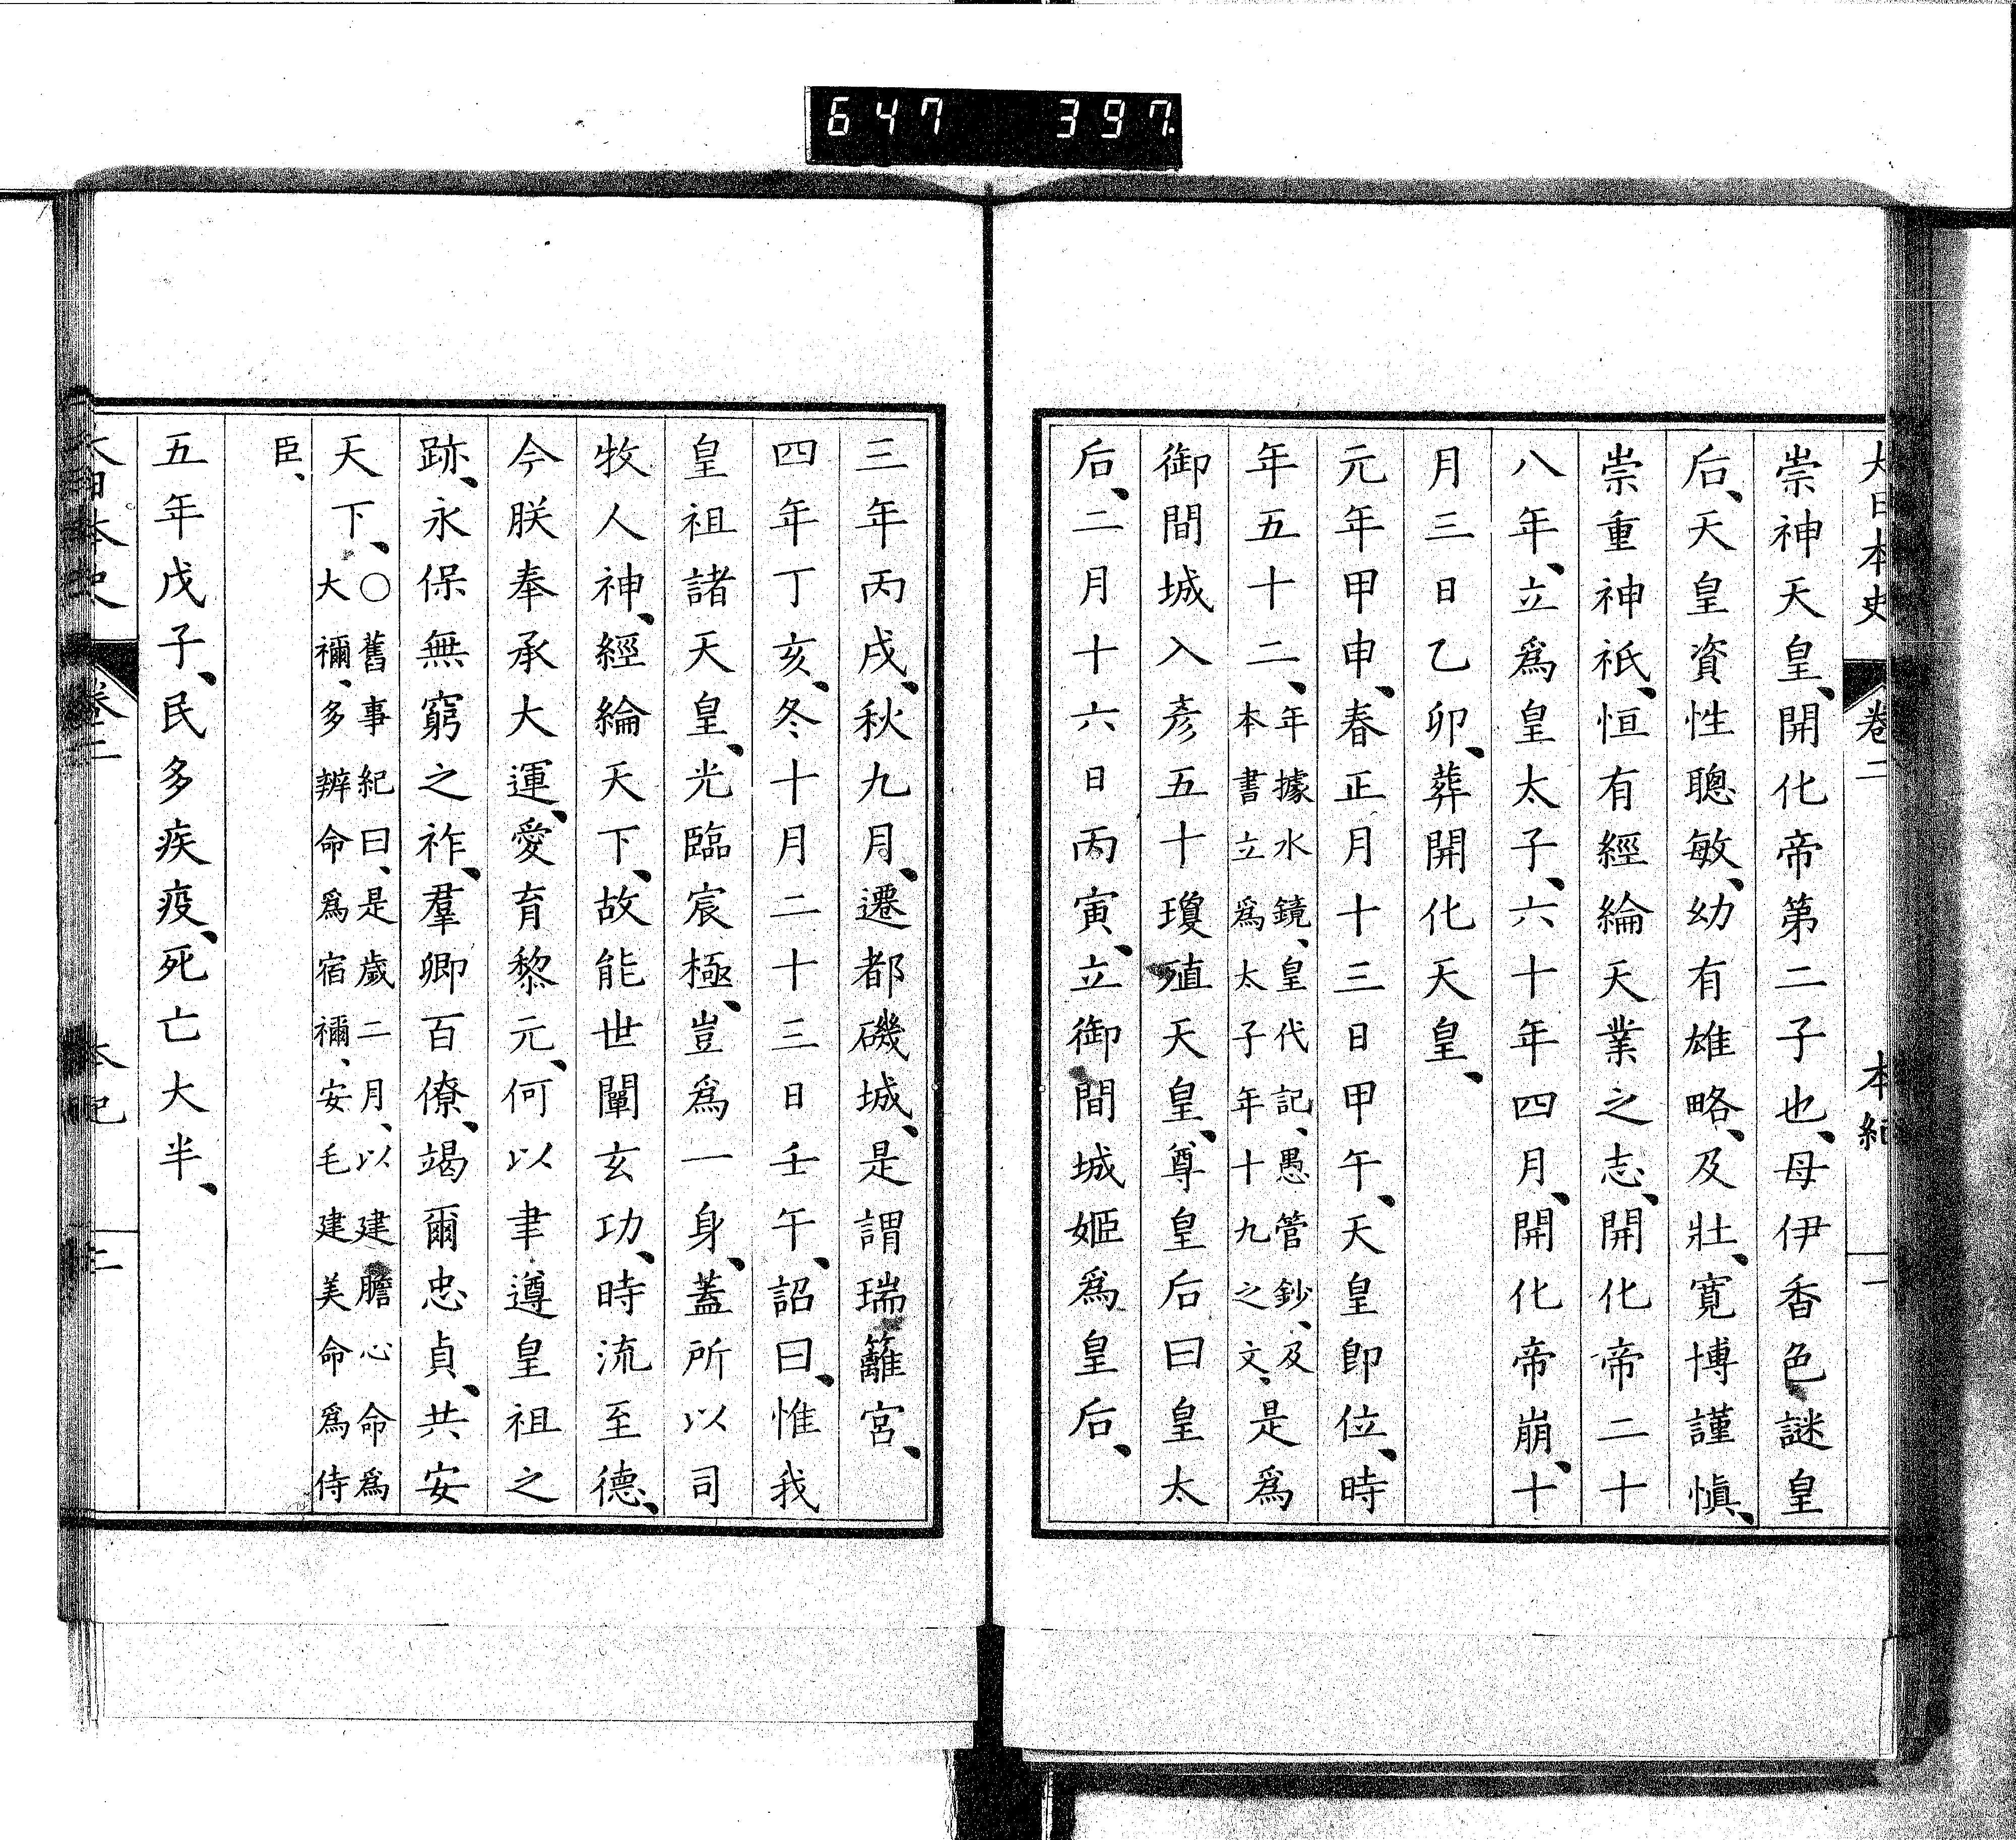 647 397.
大日本史 卷二 本紀 一
崇神天皇、開化帝第二子也、母伊香色謎皇
后、天皇資性聰敏、幼有雄略、及壯、寬博謹愼、
崇重神祇、恒有經綸天業之志、開化帝二十
八年、立爲皇太子、六十年四月、開化帝崩、十
月三日乙卯、葬開化天皇、
元年甲申、春正月十三日甲午、天皇卽位、時
年五十二、年據水鏡、皇代記、愚管鈔、及本書立爲太子年十九之文、是爲
御間城入彥五十瓊殖天皇、尊皇后曰皇太
后、二月十六日丙寅、立御間城姬爲皇后、
三年丙戌、秋九月、遷都磯城、是謂瑞籬宮、
四年丁亥、冬十月二十三日壬午、詔曰、惟我
皇祖諸天皇、光臨宸極、豈爲一身、蓋所以司
牧人神、經綸天下、故能世闡玄功、時流至德、
今朕奉承大運、愛育黎元、何以聿遵皇祖之
跡、永保無窮之祚、羣卿百僚、竭爾忠貞、共安
天下、〇舊事紀曰、是歲二月、以建膽心命爲大禰、多辨命爲宿禰、安毛建美命爲侍
臣、
五年戊子、民多疾疫、死亡大半、
大日本史 卷二 本紀